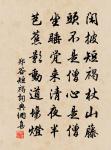 閑披短褐杖山藤
頭不是僧心是僧
坐睡覺來清夜半
芭蕉影動道場燈
鄭谷短褐詞典網